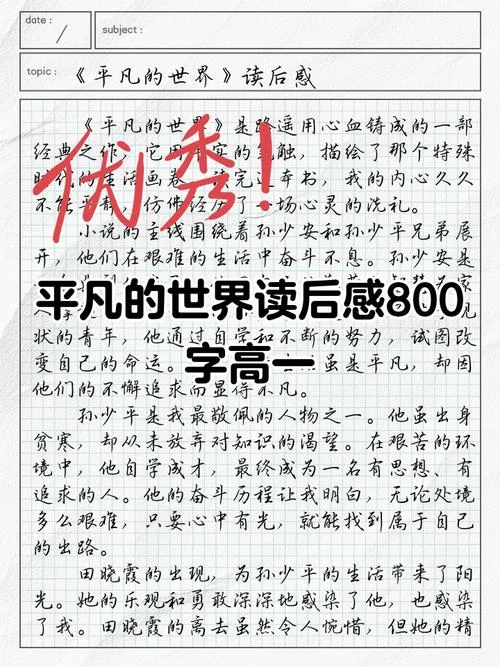 date:
subject:
topic: 《平凡的世界》读后感
《平凡的世界》是路遥用心血铸成的一部
经典之作,它用 实的笔触,描绘了那个特殊
时代 生活画卷。读完这本书,我的内心久久
不能平静,仿佛经历了一场心灵的洗礼。
优秀!
小说的主线围绕着孙少安和孙少平兄弟展
开,他们在艰难的生活中奋斗不息。孙少安是
平凡的世界读后感800
字高一
状的青年,他通过自学和不断的努力,试图改
变自己的命运。 虽是平凡,却因
他们的不懈追求而显得不凡。
孙少平是我最敬佩的人物之一。他虽出身
贫寒,却从未放弃对知识的渴望。在艰苦的环
境中,他自学成才,最终成为一名有思想、有
追求的人。他的奋斗历程让我明白,无论处境
多么艰难,只要心中有光,就能找到属于自己
的出路。
田晓霞的出现,为孙少平的生活带来了阳
光。她的乐观和勇敢深深地感染了他,也感染
了我。田晓霞的离去虽然令人惋惜,但她的精